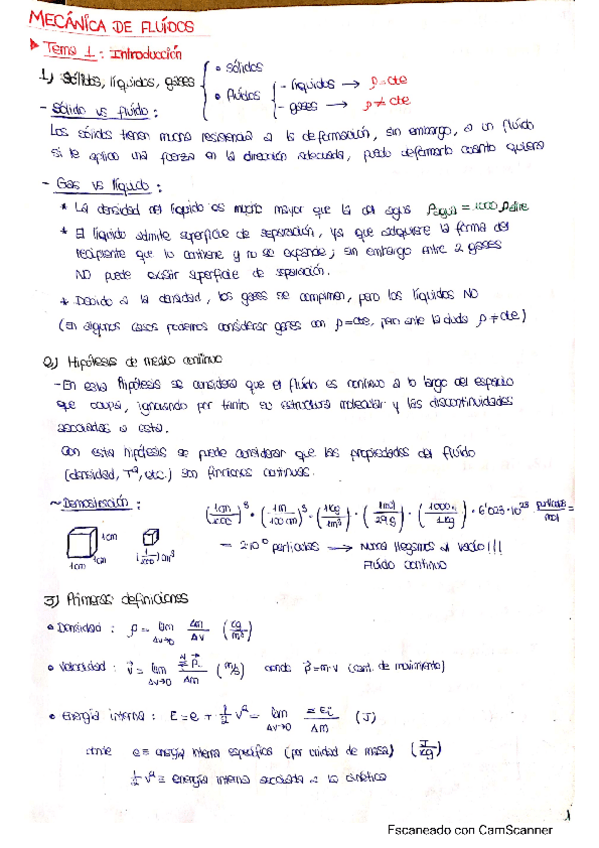 MECÁNICA DE FLUÍDOS
Tema 1: Introducción
1) Sólidos, líquidos, gases { • sólidos
• fluidos { - líquidos → ρ=cte
- gases → ρ≠cte
- Sólido vs fluido:
Los sólidos tienen mucha resistencia a la deformación, sin embargo, a un fluido
si le aplico una fuerza en la dirección adecuada, puedo deformarlo cuanto quiera
- Gas vs líquido:
* La densidad del líquido es mucho mayor que la del agua ρagua = 1000 ρaire
* El líquido admite superficie de separación, ya que adquiere la forma del
recipiente que lo contiene y no se expande; sin embargo entre 2 gases
NO puede existir superficie de separación.
* Debido a la densidad, los gases se comprimen, pero los líquidos NO
(En algunos casos podremos considerar gases con ρ=cte, pero ante la duda ρ≠cte)
2) Hipótesis de medio continuo
- En esta hipótesis se considera que el fluido es continuo a lo largo del espacio
que ocupa, ignorando por tanto su estructura molecular y las discontinuidades
asociadas a esta.
Con esta hipótesis se puede considerar que las propiedades del fluido
(densidad, Tª, etc.) son funciones continuas.
~ Demostración:
(1cm/1000)³ · (1m/100cm)³ · (1kg/1m³) · · (1000/1kg) · 6'023·10²³ partículas/mol =
1cm
1cm
1cm
partículas → Nunca llegamos al vacío!!!
Fluido continuo
3) Primeras definiciones
• Densidad: ρ = lim Δv→0 Δm/Δv (kg/m³)
• Velocidad: v = lim Δv→0 (m/s) donde p=m·v (cant. de movimiento)
• Energía interna: E = e + ½ v² = lim Δv→0 (J)
donde e ≡ energía interna específica (por unidad de masa) (J/kg)
½ v² ≡ energía interna asociada a la cinética
1
Escaneado con CamScanner